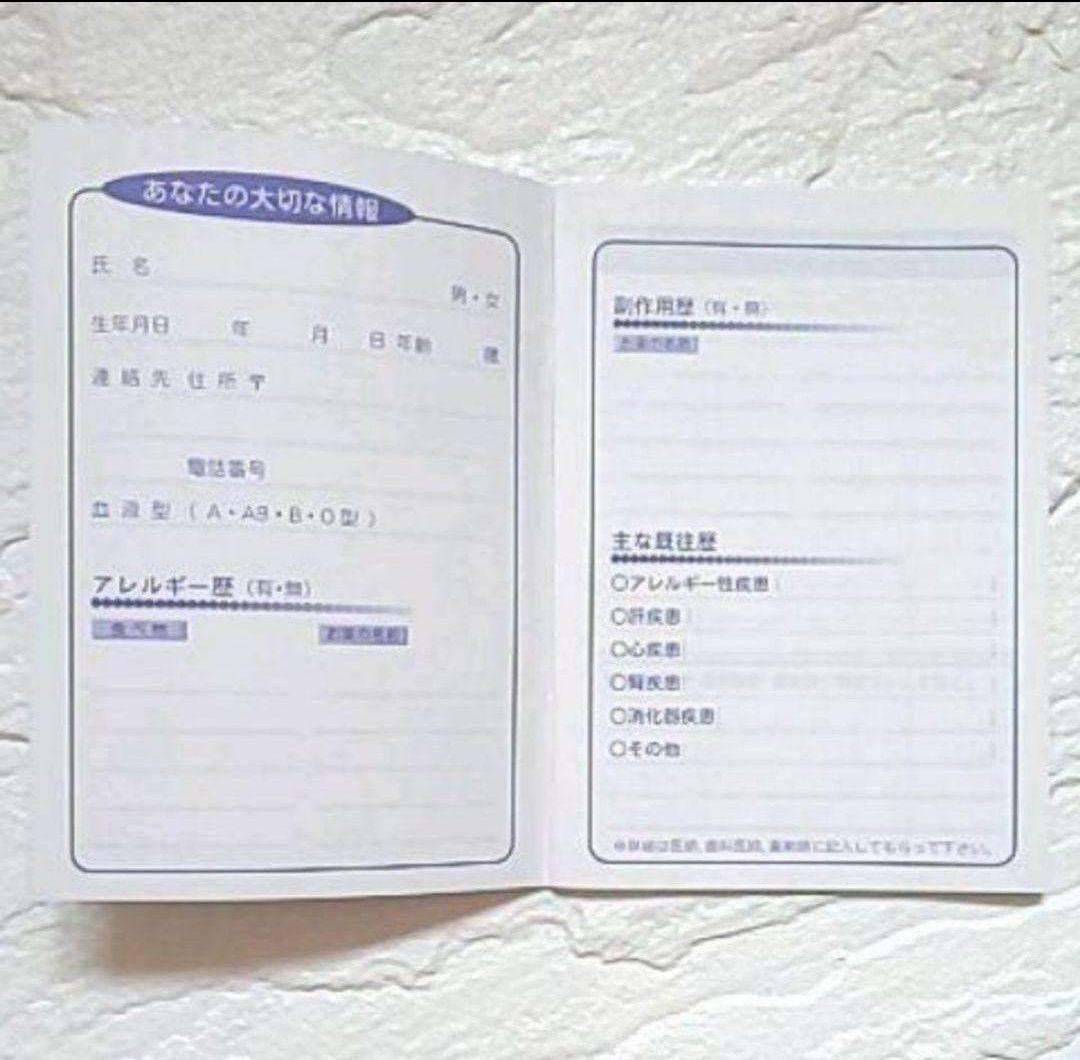 あなたの大切な情報
氏 名
男・女
生年月日 年 月 日 年齢 歳
連 絡 先 住 所 〒
電話番号
血 液 型 ( A・AB・B・O型 )
アレルギー歴 (有・無)
食べ物 お薬の名前
副作用歴 (有・無)
お薬の名前
主な既往歴
○アレルギー性疾患(
○肝疾患(
○心疾患(
○腎疾患
○消化器疾患(
○その他
※詳細は医師、歯科医師、薬剤師に記入してもらって下さい。